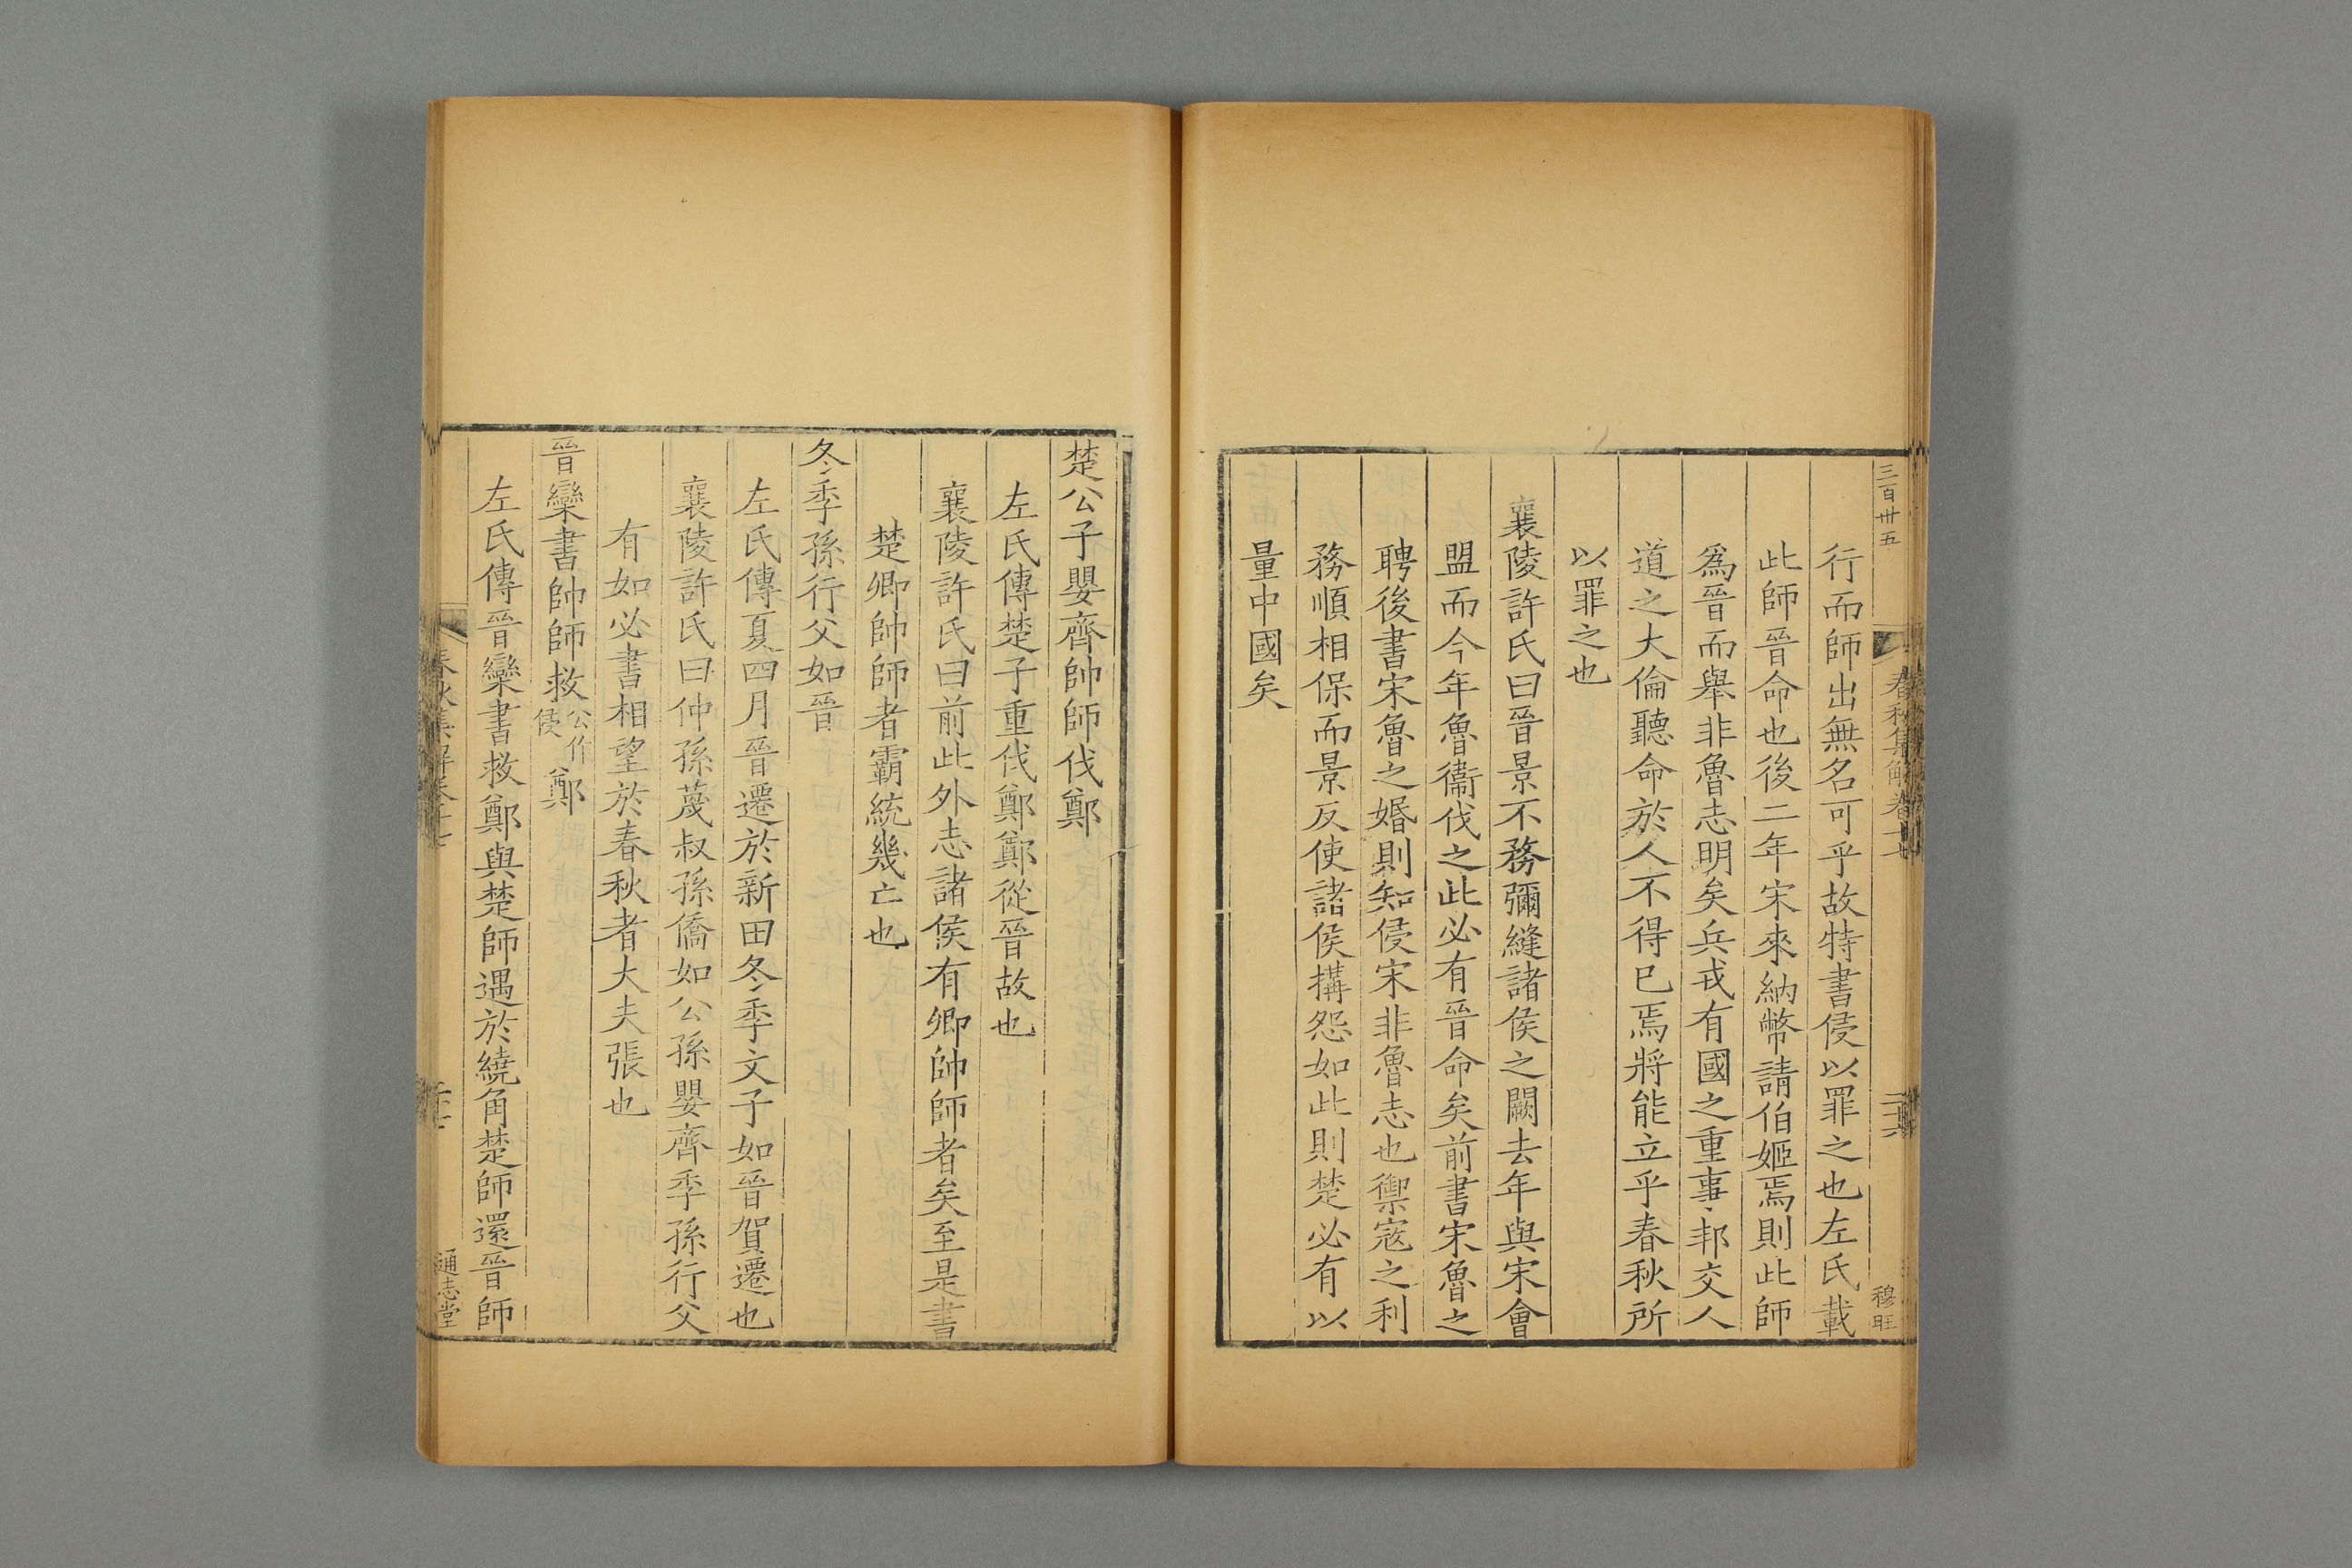 三百卅五
春秋集解卷十七
二十六
穆旺
行而師出無名可乎故特書侵以罪之也左氏載
此師晉命也後二年宋來納幣請伯姬焉則此師
爲晉而舉非魯志明矣兵戎有國之重事邦交人
道之大倫聽命於人不得已焉將能立乎春秋所
以罪之也
襄陵許氏曰晉景不務彌縫諸侯之闕去年與宋會
盟而今年魯衞伐之此必有晉命矣前書宋魯之
聘後書宋魯之婚則知侵宋非魯志也禦寇之利
務順相保而景反使諸侯搆怨如此則楚必有以
量中國矣
楚公子嬰齊帥師伐鄭
左氏傳楚子重伐鄭鄭從晉故也
襄陵許氏曰前此外志諸侯有卿帥師者矣至是書
楚卿帥師者霸統幾亡也
冬季孫行父如晉
左氏傳夏四月晉遷於新田冬季文子如晉賀遷也
襄陵許氏曰仲孫蔑叔孫僑如公孫嬰齊季孫行父
有如必書相望於春秋者大夫張也
晉欒書帥師救公作侵鄭
左氏傳晉欒書救鄭與楚師遇於繞角楚師還晉師
春秋集解卷十七
通志堂